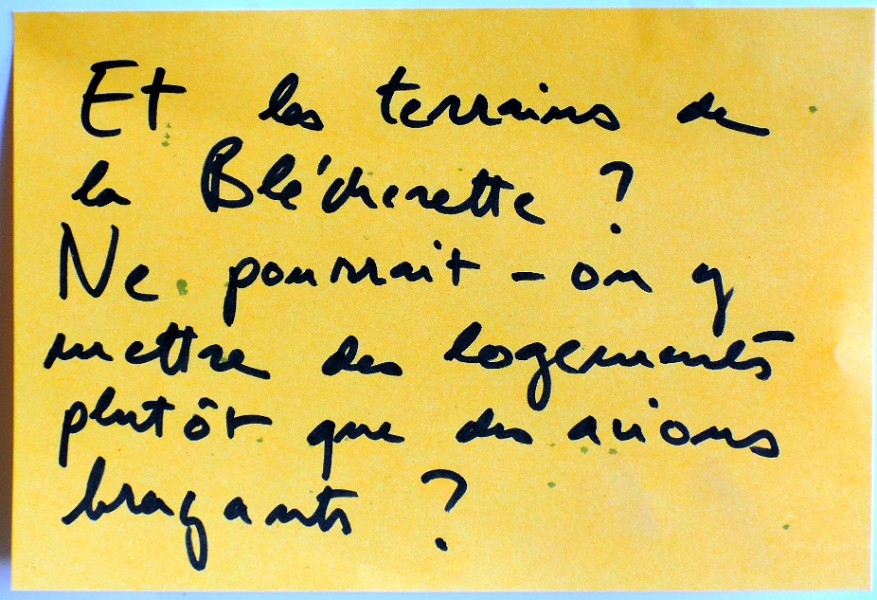 Et les terrains de
la Blécherette ?
Ne pourrait-on y
mettre des logements
plutôt que des avions
bruyants ?